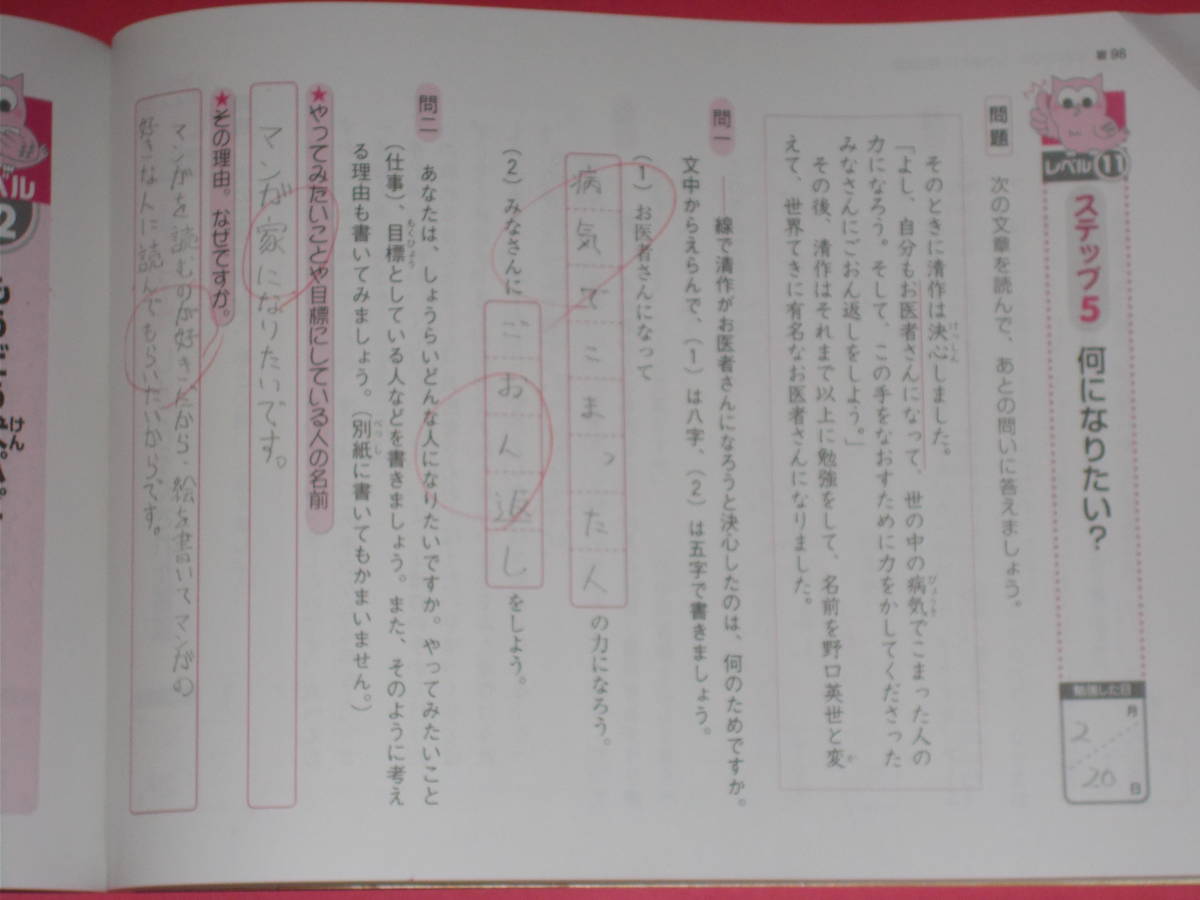 98
レベル11
ステップ5 何になりたい?
勉強した日
2月20日
問題 次の文章を読んで、あとの問いに答えましょう。
そのときに清作は決心しました。
けっしん
「よし、自分もお医者さんになって、世の中の病気でこまった人の
びょうき
力になろう。そして、この手をなおすために力をかしてくださった
みなさんにごおん返しをしよう。」
その後、清作はそれまで以上に勉強をして、名前を野口英世と変
か
えて、世界てきに有名なお医者さんになりました。
問一 ――線で清作がお医者さんになろうと決心したのは、何のためですか。
文中からえらんで、(1)は八字、(2)は五字で書きましょう。
(1)お医者さんになって
病気でこまった人の力になろう。
(2)みなさんにごおん返しをしよう。
問二 あなたは、しょうらいどんな人になりたいですか。やってみたいこと
(仕事)、目標としている人などを書きましょう。また、そのように考え
もくひょう
る理由も書いてみましょう。(別紙に書いてもかまいません。)
べっし
★やってみたいことや目標にしている人の名前
マンガ家になりたいです。
★その理由。なぜですか。
マンガを読むのが好きだから、絵を書いてマンガの
好きな人に読んでもらいたいからです。
ベル
2
けん